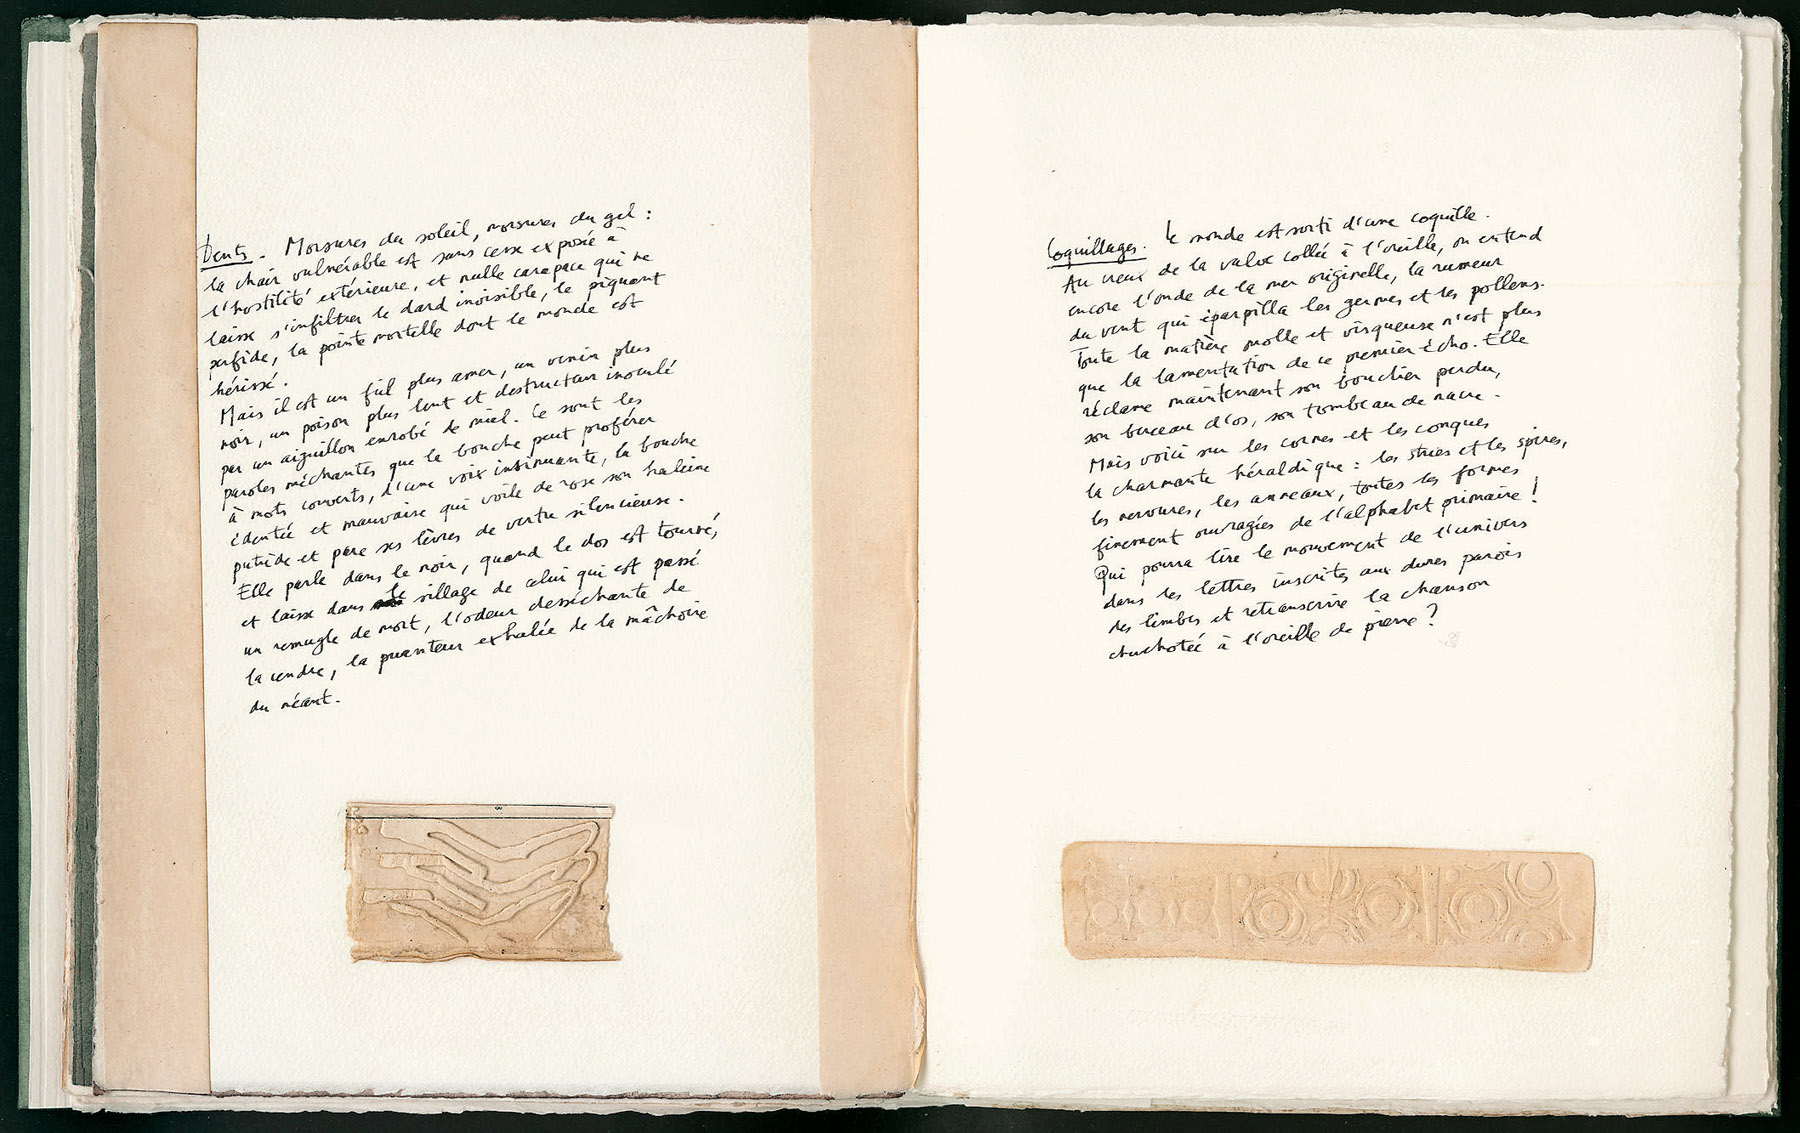 Dents. Morsures du soleil, morsures du gel :
la chair vulnérable est sans cesse exposée à
l'hostilité extérieure, et nulle carapace qui ne
laisse s'infiltrer le dard invisible, le piquant
perfide, la pointe mortelle dont le monde est
hérissé.
Mais il est un fiel plus amer, un venin plus
noir, un poison plus lent et destructeur inoculé
par un aiguillon enrobé de miel. Ce sont les
paroles méchantes que la bouche peut proférer
à mots couverts, d'une voix insinuante, la bouche
édentée et mauvaise qui voile de rose son haleine
putride et pare ses lèvres de vertu silencieuse.
Elle parle dans le noir, quand le dos est tourné,
et laisse dans le sillage de celui qui est passé
un remugle de mort, l'odeur desséchante de
la cendre, la puanteur exhalée de la mâchoire
du néant.
Coquillages. Le monde est sorti d'une coquille.
Au creux de la valve collée à l'oreille, on entend
encore l'onde de la mer originelle, la rumeur
du vent qui éparpilla les germes et les pollens.
Toute la matière molle et visqueuse n'est plus
que la lamentation de ce premier écho. Elle
réclame maintenant son bouclier perdu,
son berceau d'os, son tombeau de nacre.
Mais voici sur les cornes et les conques
la charmante héraldique : les stries et les spires,
les nervures, les anneaux, toutes les formes
finement ouvragées de l'alphabet primaire !
Qui pourra lire le mouvement de l'univers
dans les lettres inscrites aux dures parois
des limbes et retranscrire la chanson
chuchotée à l'oreille de pierre ?